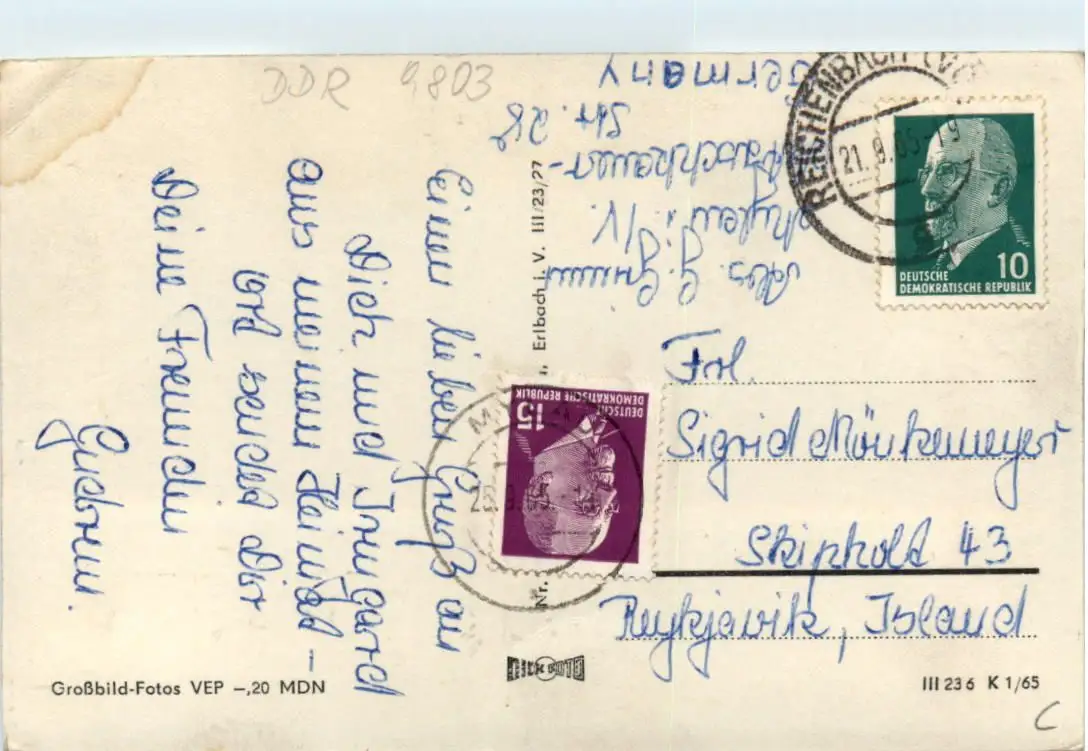 DDR 9803
Einen lieben Gruß an
Dich und Irmgard
aus meinem Heimat-
ort sendet Dir
Deine Freundin
Gudrun.
Abs. G. Grimm
i/V.
Str. 28
Germany
REICHENBACH (VOGTL
21.9.65-19
DEUTSCHE
DEMOKRATISCHE REPUBLIK
10
DEUTSCHE
DEMOKRATISCHE REPUBLIK
15
Frl.
Sigrid Mönkemeyer
Skiphold 43
Reykjavik, Island
Nr.
Erlbach i. V. III/23/77
Großbild-Fotos VEP –,20 MDN
III 23 6 K 1/65
C